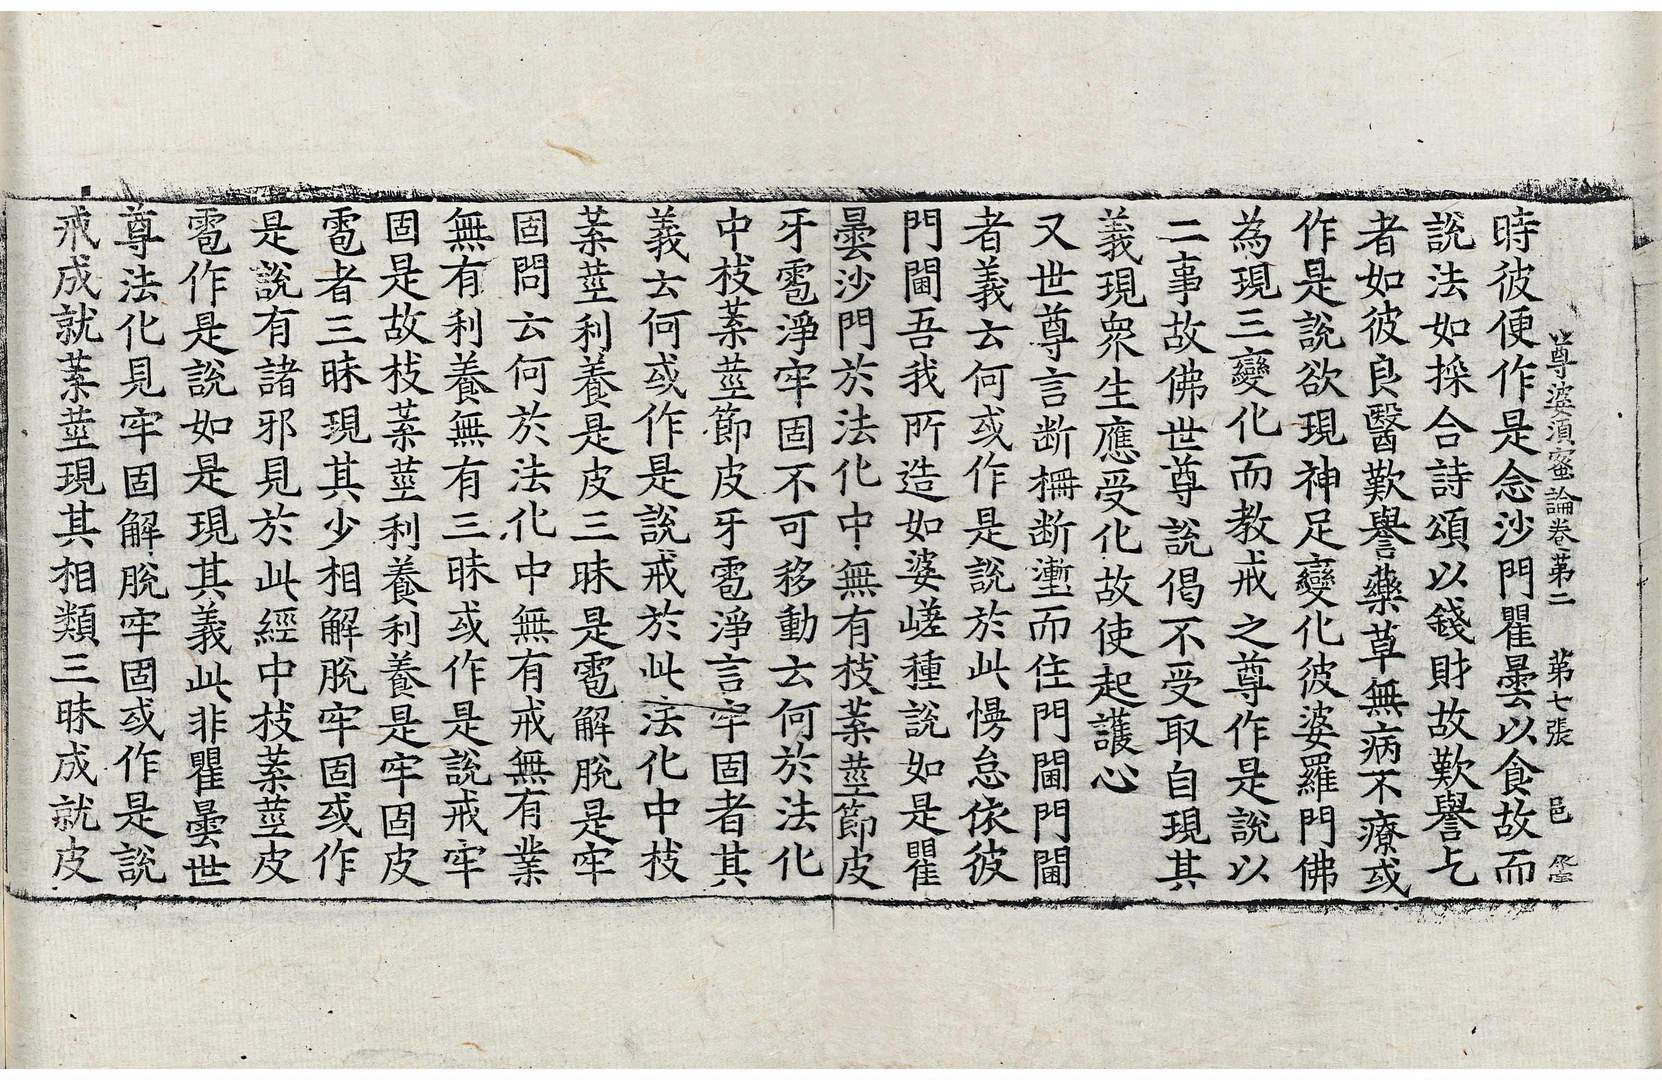 尊婆須蜜論卷第二　第七張　邑
時彼便作是念沙門瞿曇以食故而
說法如採合詩頌以錢財故歎譽乞
者如彼良醫歎譽藥草無病不療或
作是說欲現神足變化彼婆羅門佛
為現三變化而教戒之尊作是說以
二事故佛世尊說偈不受取自現其
義現衆生應受化故使起護心
又世尊言斷柵斷壍而住門閫門閫
者義云何或作是說於此慢怠依彼
門閫吾我所造如婆嵯種說如是瞿
曇沙門於法化中無有枝葉莖節皮
牙雹淨牢固不可移動云何於法化
中枝葉莖節皮牙雹淨言牢固者其
義云何或作是說戒於此法化中枝
葉莖利養是皮三昧是雹解脫是牢
固問云何於法化中無有戒無有業
無有利養無有三昧或作是說戒牢
固是故枝葉莖利養利養是牢固皮
雹者三昧現其少相解脫牢固或作
是說有諸邪見於此經中枝葉莖皮
雹作是說如是現其義此非瞿曇世
尊法化見牢固解脫牢固或作是說
戒成就葉莖現其相類三昧成就皮